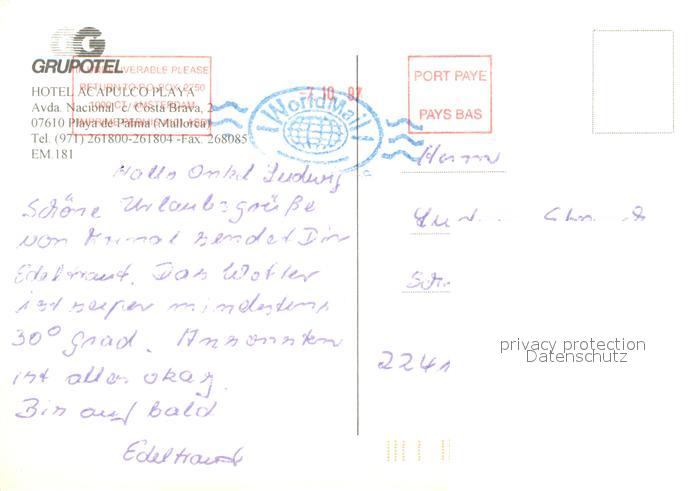 GRUPOTEL
HOTEL ACAPULCO PLAYA
Avda. Nacional c/ Costa Brava, 2
07610 Playa de Palma (Mallorca)
Tel. (971) 261800-261804 -Fax. 268085
EM.181
UNDELIVERABLE PLEASE
RETURN TO P.O. BOX
AMSTERDAM
7.10.97
WorldMail
PORT PAYE
PAYS BAS
Hallo Onkel Ludwig
Schöne Urlaubsgrüße
von sendet Dir
Edeltraut. Das Wetter
ist super mindestens
30° Grad. Ansonsten
ist alles okay.
Bis auf bald
Edeltraut
Herrn
2241
privacy protection
Datenschutz